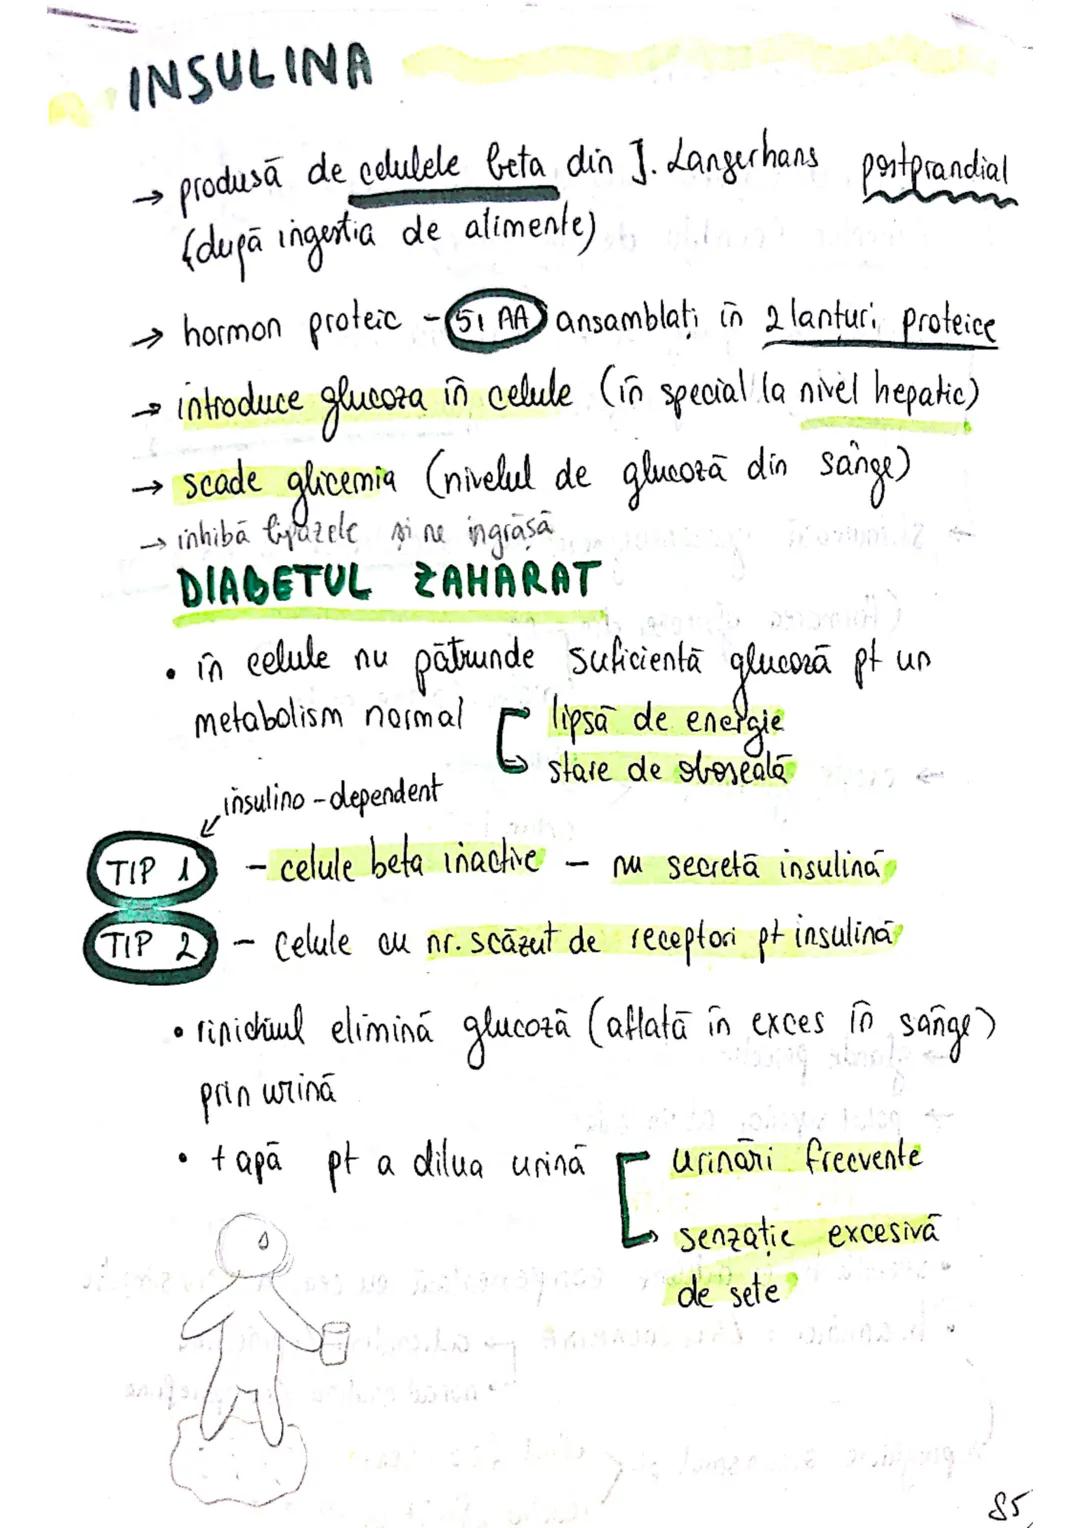 INSULINA
→ produsă de celulele beta din I. Langerhans postprandial
(după ingestia de alimente)
→ hormon proteic - 51 AA ansamblați în 2 lanțuri proteice
→ introduce glucoza în celule (în special la nivel hepatic)
→ scade glicemia (nivelul de glucoză din sânge)
→ inhibă lipazele și ne îngrașă
DIABETUL ZAHARAT
• în celule nu pătrunde suficientă glucoză pt un
metabolism normal lipsă de energie
stare de oboseală
insulino-dependent
TIP 1 - celule beta inactive - nu secretă insulină
TIP 2 - celule cu nr. scăzut de receptori pt insulină
• rinichiul elimină glucoză (aflată în exces în sânge)
prin urină
• + apă pt a dilua urină urinări frecvente
senzație excesivă
de sete
85